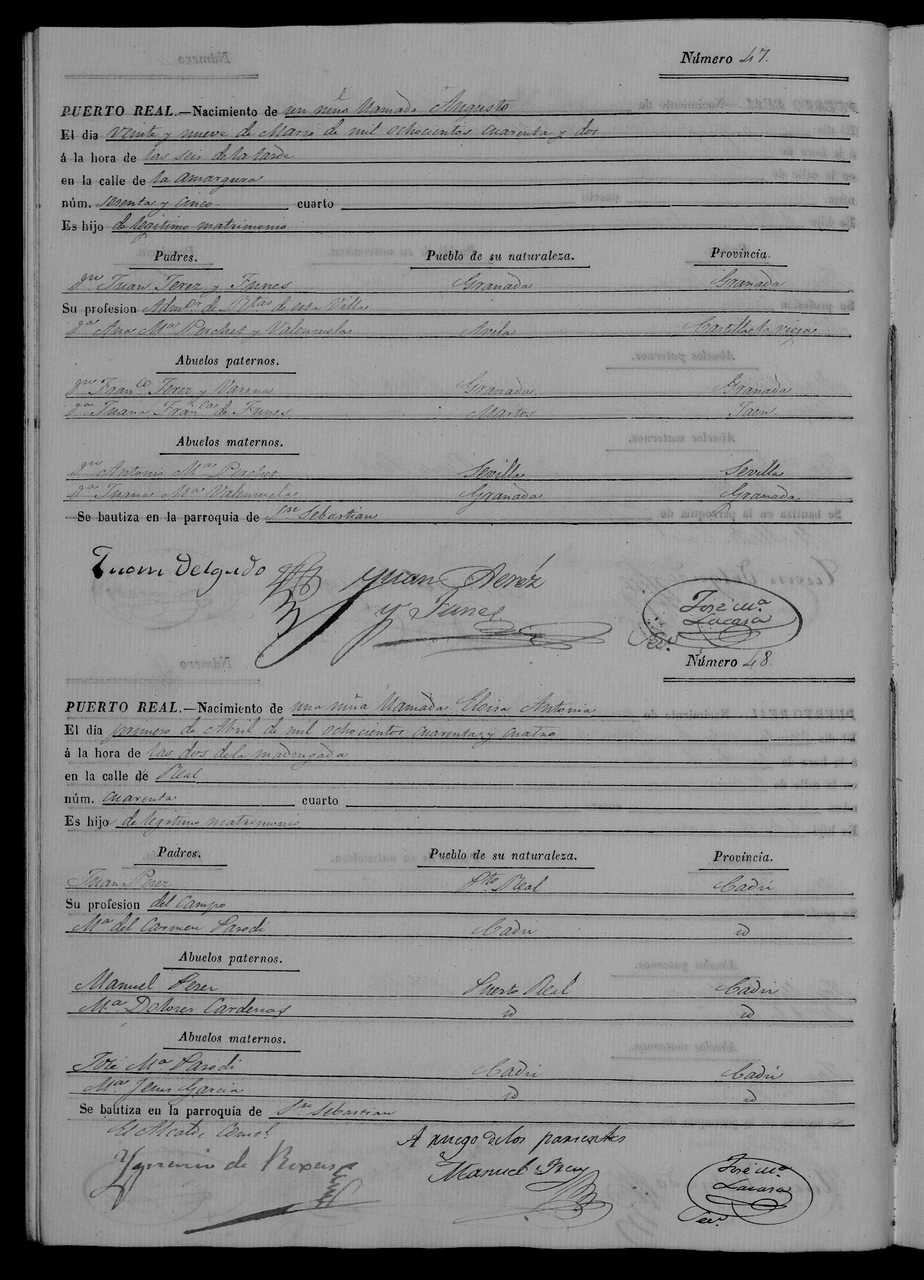 Número 47.
PUERTO REAL.—Nacimiento de un niño llamado Augusto
El dia Veinte y nueve de Marzo de mil ochocientos cuarenta y dos
á la hora de las seis de la tarde
en la calle de la amargura
núm. sesenta y cinco cuarto
Es hijo de legitimo matrimonio
Padres. Pueblo de su naturaleza. Provincia.
Dn. Juan Perez y Funes Granada Granada
Su profesion Admor. de Rtas de esta Villa
Da. Ana Ma. y Valenzuela Avila Castilla la vieja
Abuelos paternos.
Dn. Franco. Perez y Granada Granada
Da. Juana Franca. de Funes Martos Jaen
Abuelos maternos.
Dn. Antonio Ma. Sevilla Sevilla
Da. Juana Ma. Valenzuela Granada Granada
Se bautiza en la parroquia de Sn. Sebastian
Juan Delgado Juan Peréz
y Funes
José Ma.
Lacasa
Sec.
Número 48.
PUERTO REAL.—Nacimiento de una niña llamada Eloisa Antonia
El dia primero de Abril de mil ochocientos cuarenta y cuatro
á la hora de las dos de la madrugada
en la calle de Real
núm. cuarenta cuarto
Es hijo de legitimo matrimonio
Padres. Pueblo de su naturaleza. Provincia.
Juan Perez Pto. Real Cadiz
Su profesion del Campo
Ma. del Carmen Parodi Cadiz id
Abuelos paternos.
Manuel Perez Puerto Real Cadiz
Ma. Dolores Cardenas id id
Abuelos maternos.
José Ma. Parodi Cadiz Cadiz
Ma. Jesus Garcia id id
Se bautiza en la parroquia de Sn. Sebastian
El Alcalde Consl.
A ruego de los parientes
Ygnacio de
Manuel
José Ma.
Lacasa
Sec.